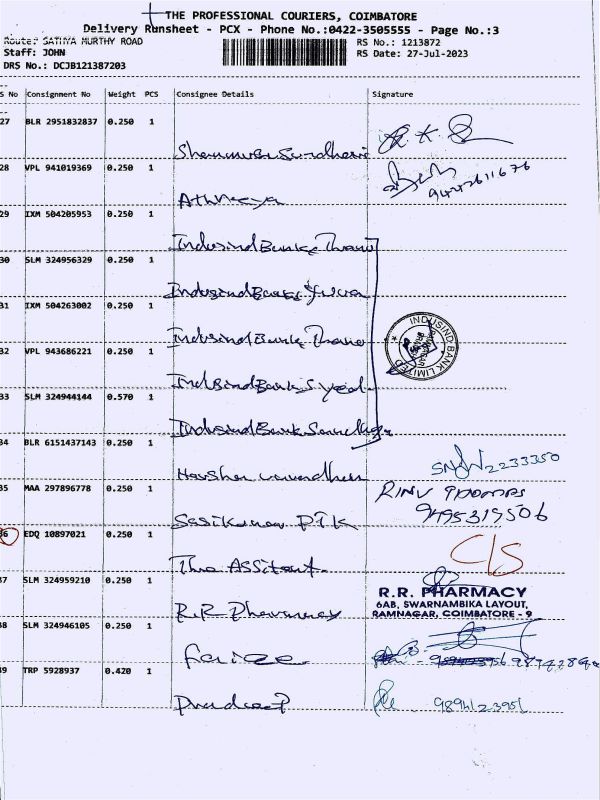 THE PROFESSIONAL COURIERS, COIMBATORE
Delivery Runsheet - PCX - Phone No.:0422-3505555 - Page No.:3
Route: SATHYA MURTHY ROAD
RS No.: 1213872
Staff: JOHN
RS Date: 27-Jul-2023
DRS No.: DCJB121387203
S No Consignment No Weight PCS Consignee Details Signature
27 BLR 2951832837 0.250 1
28 VPL 941019369 0.250 1
9442611676
Athreya
29 IXM 504205953 0.250 1
Indusind Bank
30 SLM 324956329 0.250 1
Indusind Bank
31 IXM 504263002 0.250 1
INDUSIND BANK LIMITED
Indusind Bank
32 VPL 943686221 0.250 1
Indusind Bank Syed
33 SLM 324944144 0.570 1
Indusind Bank
34 BLR 6151437143 0.250 1
2233350
Harsha vardhan
35 MAA 297896778 0.250 1
RINU THOMAS
9495319506
Sasikumar PTK
36 EDQ 10897021 0.250 1
C/S
The Assitant
37 SLM 324959210 0.250 1
R.R. PHARMACY
6AB, SWARNAMBIKA LAYOUT,
RAMNAGAR, COIMBATORE - 9
R.R Pharmacy
38 SLM 324946105 0.250 1
39 TRP 5928937 0.420 1
Pradeep